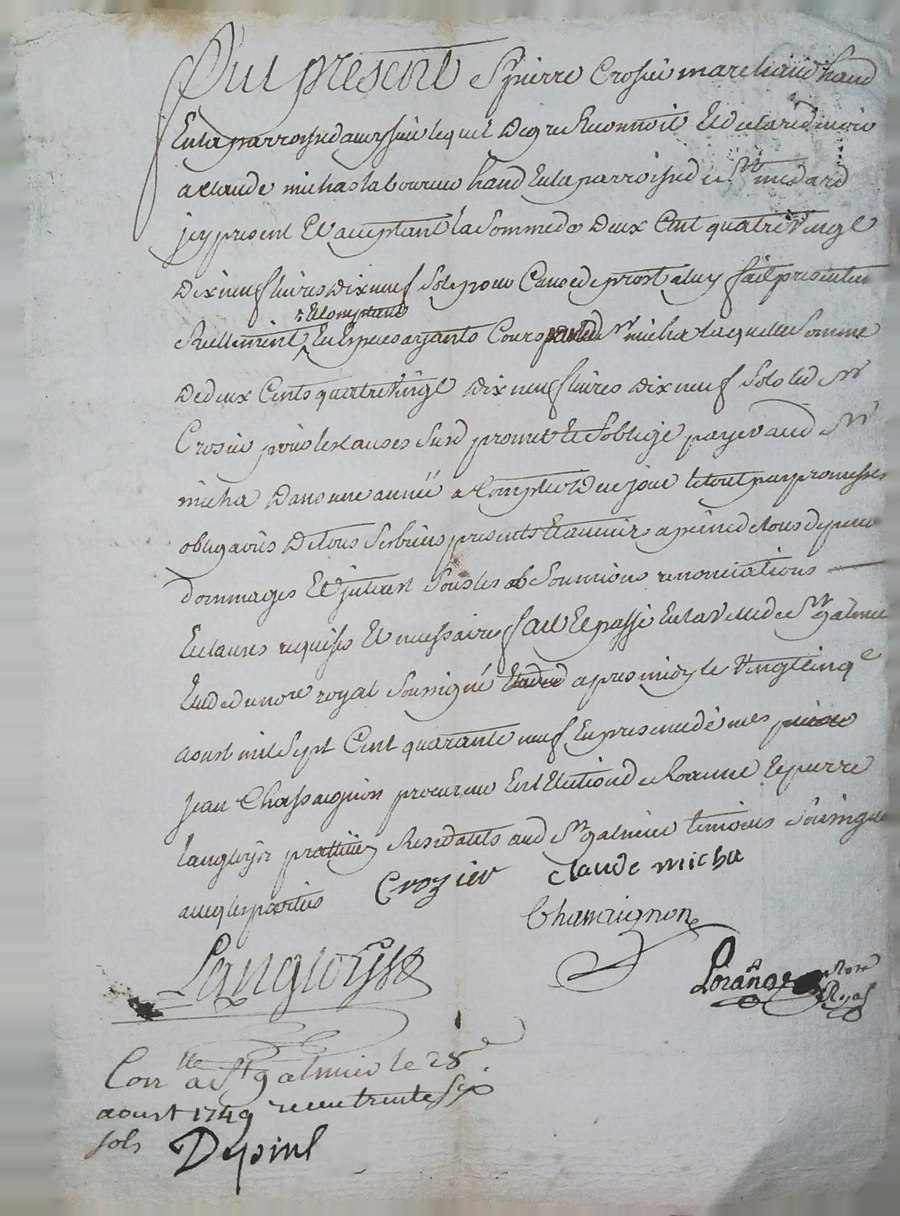 Fut present Sr pierre Crosier marchand hand
En la parroisse d'aveysieu lequel de gre Reconnoit Et declare devoir
a claude micha laboureur hand En la parroisse de St medard
jcy present Et acceptant la somme de deux Cent quatre Vingt
dix neuf livres dix neuf Sols pour Cause de prest a luy fait presentem
Reellement Et comptant En Especes ayants Cours par led Sr micha laquelle Somme
de deux Cents quatre Vingt dix neuf livres dix neuf Sols led Sr
Crosier pour les causes Susd promet Et Soblige payer aud Sr
micha dans une année a Compter de ce jour le tout par promesses
obligaōns de tous Ses biens presents Et avenirs a peine de tous depens
dommages Et jnterest Sous les Soumissions renonciations
Et clauses requises Et necessaires fait Et passé En la Ville de St galmier
Etude du nore royal Soussigné apres midy le Vingt cinqe
aoust mil Sept Cent quarante neuf En presence de mes
Jean Chassaignon procureur En l'Election de Roanne Et pierre
Langloys pratticien Residants aud St galmier temoins Soussignes
avec les parties Crozier claude micha
Chassaignon
Langloys
Lorange Nore Royal
Conlle a St galmier le 28e
aoust 1749 receu trente Six
sols Depinl